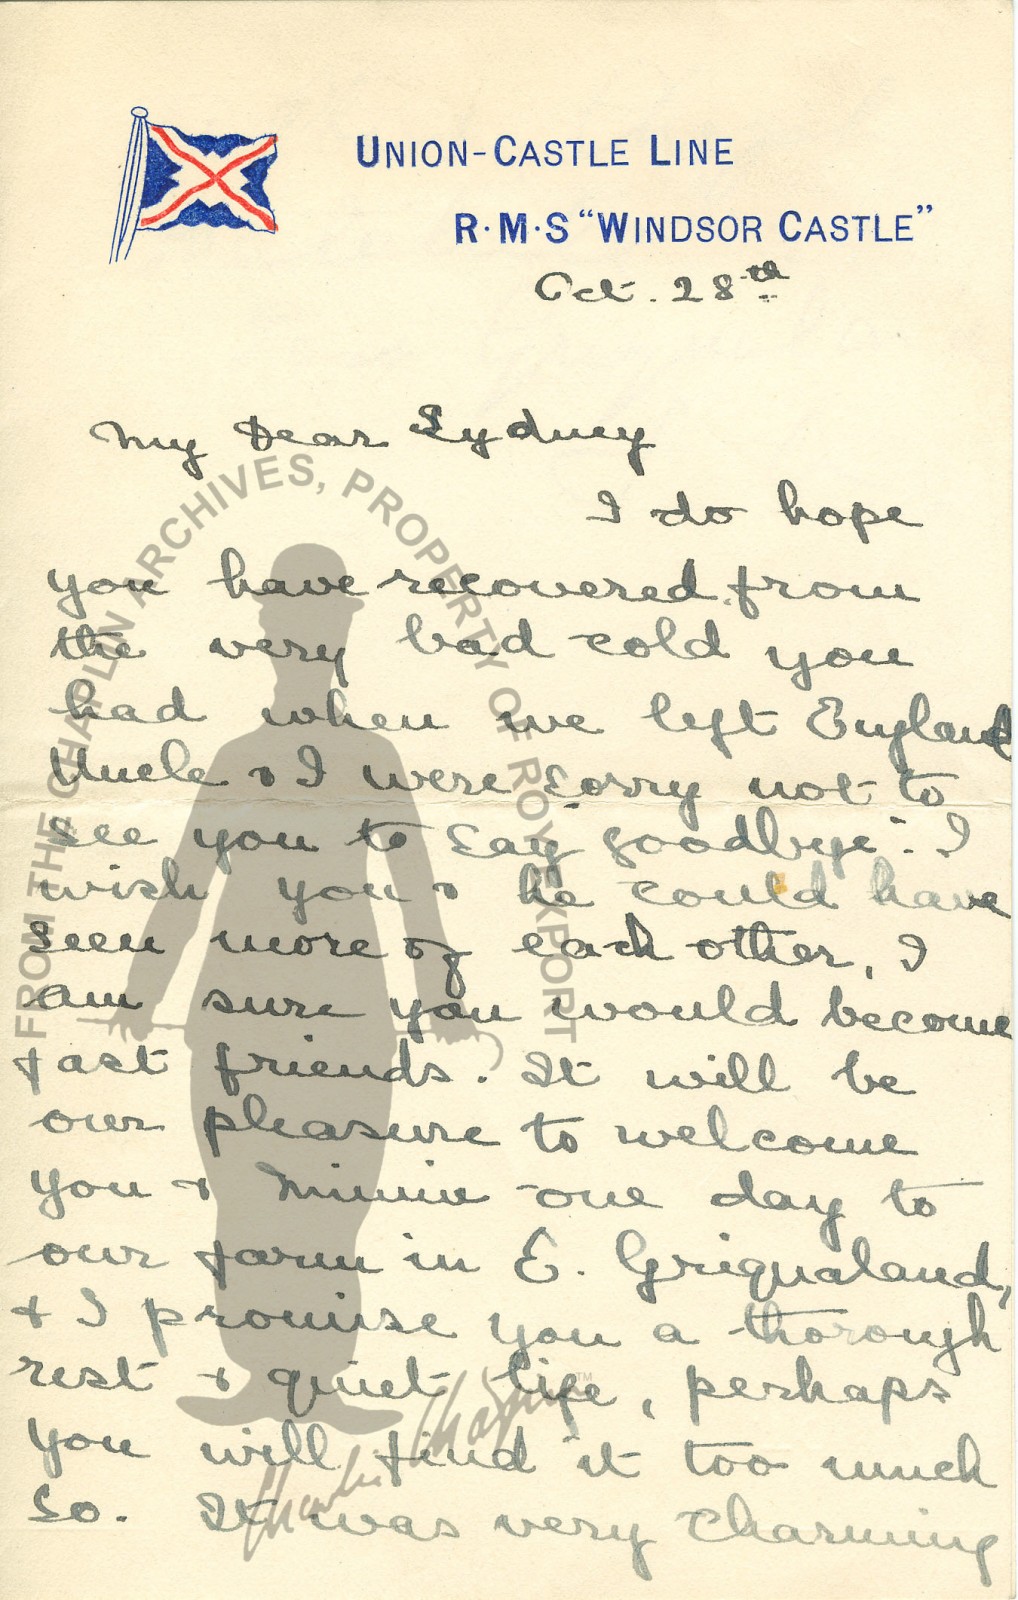 UNION-CASTLE LINE
R·M·S "WINDSOR CASTLE"
Oct. 28th
My Dear Sydney
I do hope
you have recovered from
the very bad cold you
had when we left England
Uncle & I were sorry not to
see you to say goodbye. I
wish you & he could have
seen more of each other, I
am sure you would become
fast friends. It will be
our pleasure to welcome
you & Minnie one day to
our farm in E. Griqualand,
& I promise you a thorough
rest & quiet life, perhaps
you will find it too much
so. It was very charming
FROM THE CHAPLIN ARCHIVES, PROPERTY OF ROY EXPORT
Charlie Chaplin™